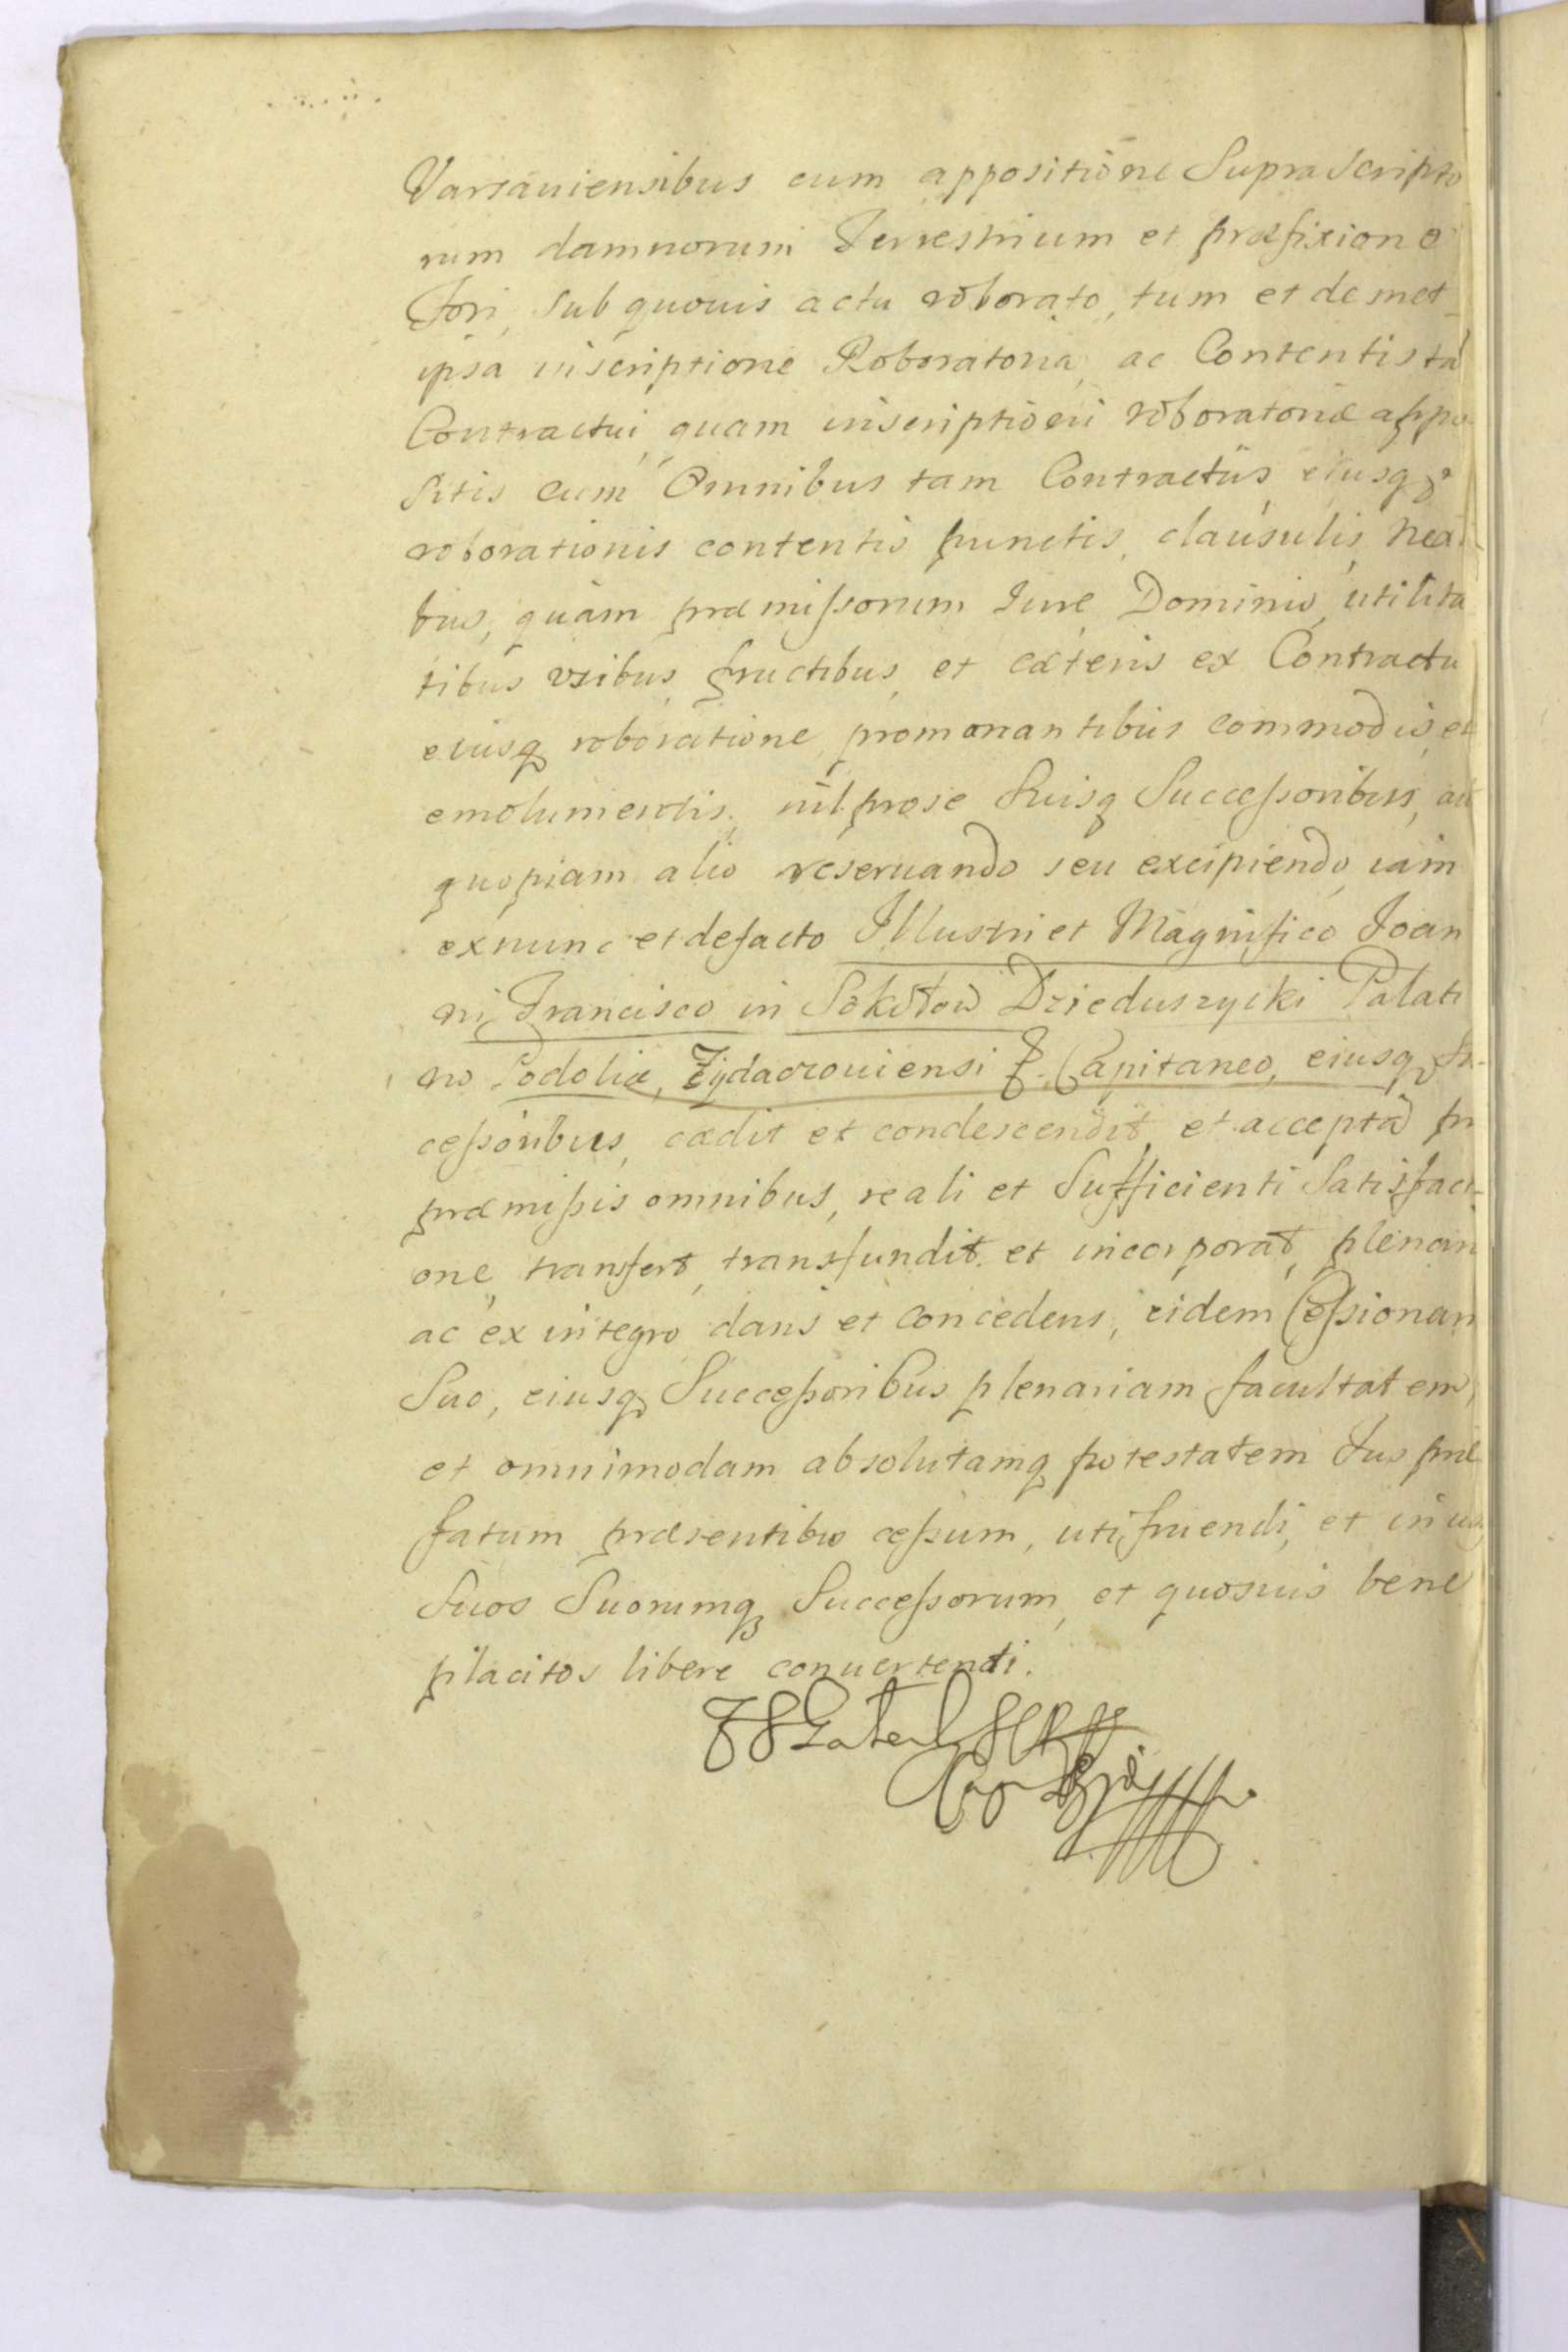 Varsauiensibus cum appositione Supra Scripto
rum damnorum Terrestrium et præfixione
Fori, sub quouis actu roborato, tum et de met
ipsa inscriptione Roboratoria, ac Contentis tà
Contractui, quam inscriptioni roboratoriæ appo
sitis cum Omnibus tam Contractûs, eiusq;
roborationis contentis punctis, clausulis, nexi
bus, quàm præmissorum Iure Dominio, utilita
tibus vsibus, fructibus, et cæteris ex Contractu
eiusq roboratione, promanantibus commodis, et
emolumentis, nil pro se Suisq Successoribus, aut
quopiam alio reseruando seu excipiendo, iam
ex nunc et de facto Illustri et Magnifico Joan
ni Francisco in Sokołow Dzieduszycki Palati
no Podoliæ, Zydaczouiensi &. Capitaneo, eiusq Su-
cessoribus, cædit et condescendit, et acceptâ pro
præmissis omnibus, reali et Sufficienti Satisfacti
one, transfert, transfundit et incorporat, plenam
ac ex integro dans et concedens, eidem Cessionari
Suo, eiusq Successoribus plenariam facultatem,
et omnimodam absolutamq potestatem Ius præ
fatum præsentibus cessum, utifruendi, et in usus
Suos Suorumq; Successorum, et quosuis bene
placitos libere conuertendi.